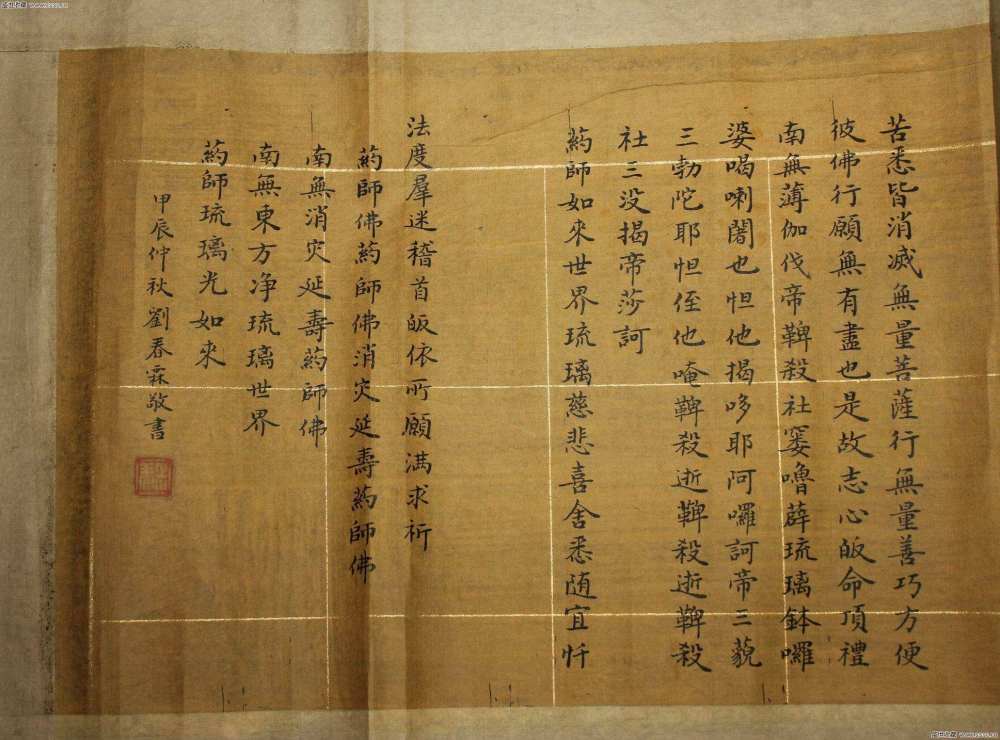 苦悉皆消滅無量菩薩行無量善巧方便
彼佛行願無有盡也是故志心皈命頂禮
南無薄伽伐帝鞞殺社窶嚕薜琉璃鉢囉
婆喝喇闍也怛他揭哆耶阿囉訶帝三藐
三勃陀耶怛侄他唵鞞殺逝鞞殺逝鞞殺
社三没揭帝莎訶
葯師如來世界琉璃慈悲喜舍悉随宜忏
法度羣迷稽首皈依所願满求祈
葯師佛葯師佛消灾延壽葯師佛
南無消灾延壽葯師佛
南無東方净琉璃世界
葯師琉璃光如來
甲辰仲秋劉春霖敬書